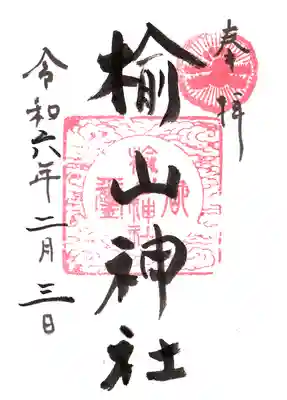 奉拝
榆山神社
令和六年二月三日